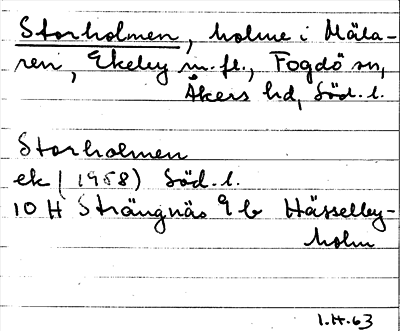 Storholmen, holme i Mäla-
ren, Ekeby m. fl., Fogdö sn,
Åkers hd, Söd. l.
Storholmen
ek (1958) Söd. l.
10 H Strängnäs 9 b Hässelby-
holm
I.H. 63